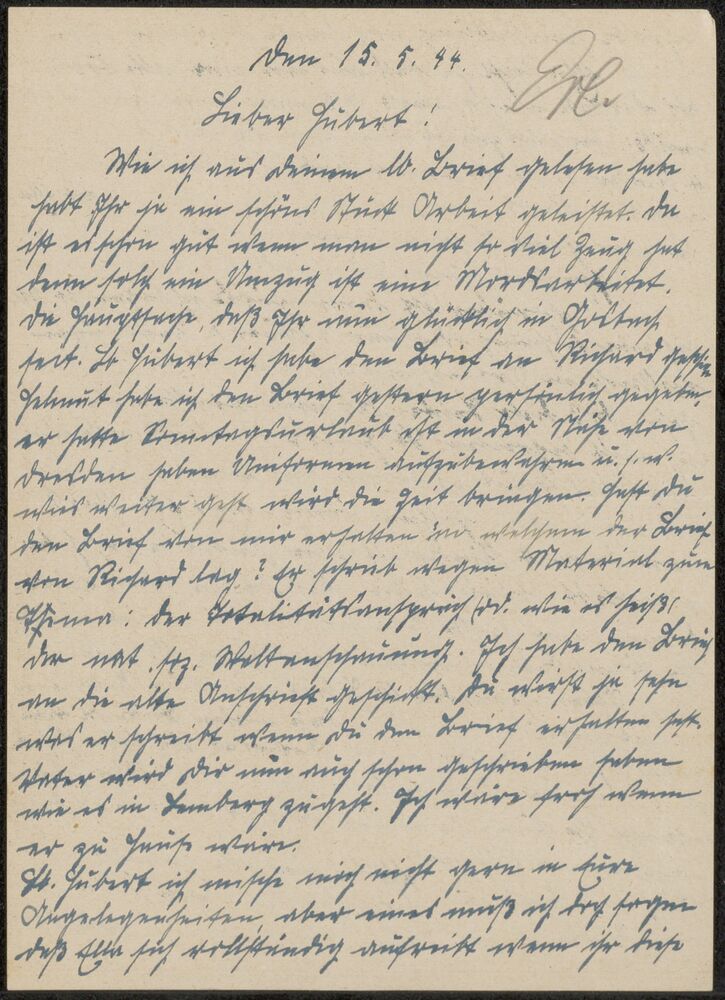 Den 15. 5. 44.
Erl.
Lieber Hubert!
Wie ich aus Deinem lb. Brief gelesen habe
habt Ihr ja ein schönes Stück Arbeit geleistet. Da
ist es schon gut wenn man nicht so viel Zeug hat
denn solch ein Umzug ist eine Mordsarbeit.
Die Hauptsache, daß Ihr nun glücklich in
seit. Lb Hubert ich habe den Brief an Richard
Helmut habe ich den Brief gestern persönlich gegeben,
er hatte Sonntagsurlaub ist in der Nähe von
Dresden haben Uniformen aufzubewahren u. s. w.
wies weiter geht wird die Zeit bringen. Hast Du
den Brief von mir erhalten in welchem der Brief
von Richard lag? Er schrieb wegen Material zum
Thema: der Totalitätsanspruch (od. wie es heißt)
der nat. soz. Weltanschauung. Ich habe den Brief
an die alte Anschrift geschickt. Du wirst ja sehn
was er schreibt wenn Du den Brief erhalten hast.
Vater wird Dir nun auch schon geschrieben haben
wie es in Lemberg zugeht. Ich wäre froh wenn
er zu Hause wäre.
Lb. Hubert ich mische mich nicht gern in Eure
Angelegenheiten, aber eines muß ich doch sagen
daß Ella sich vollständig aufreibt wenn ihr diese